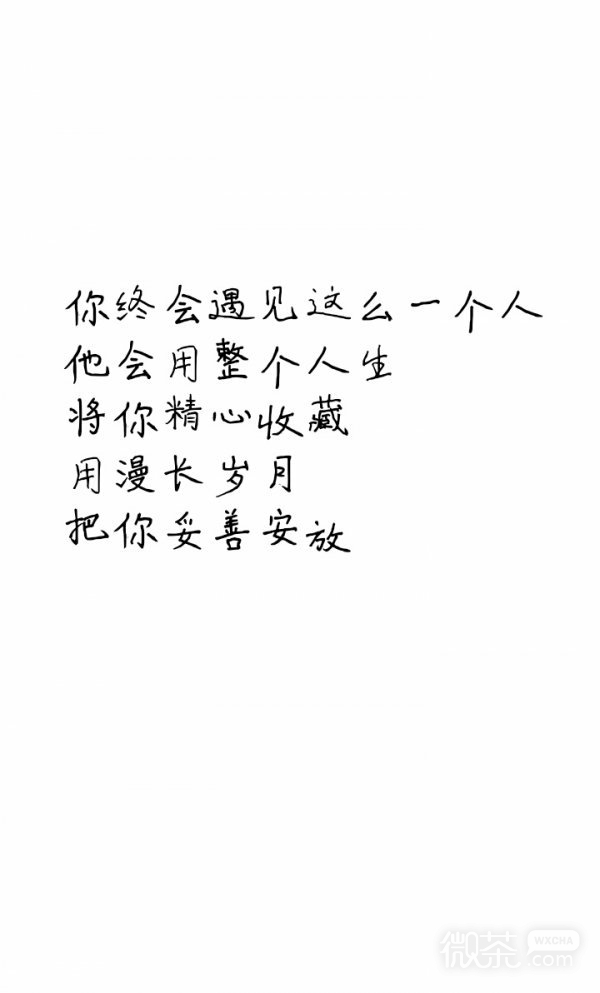 你终会遇见这么一个人
他会用整个人生
将你精心收藏
用漫长岁月
把你妥善安放
微茶
WXCHA
.com